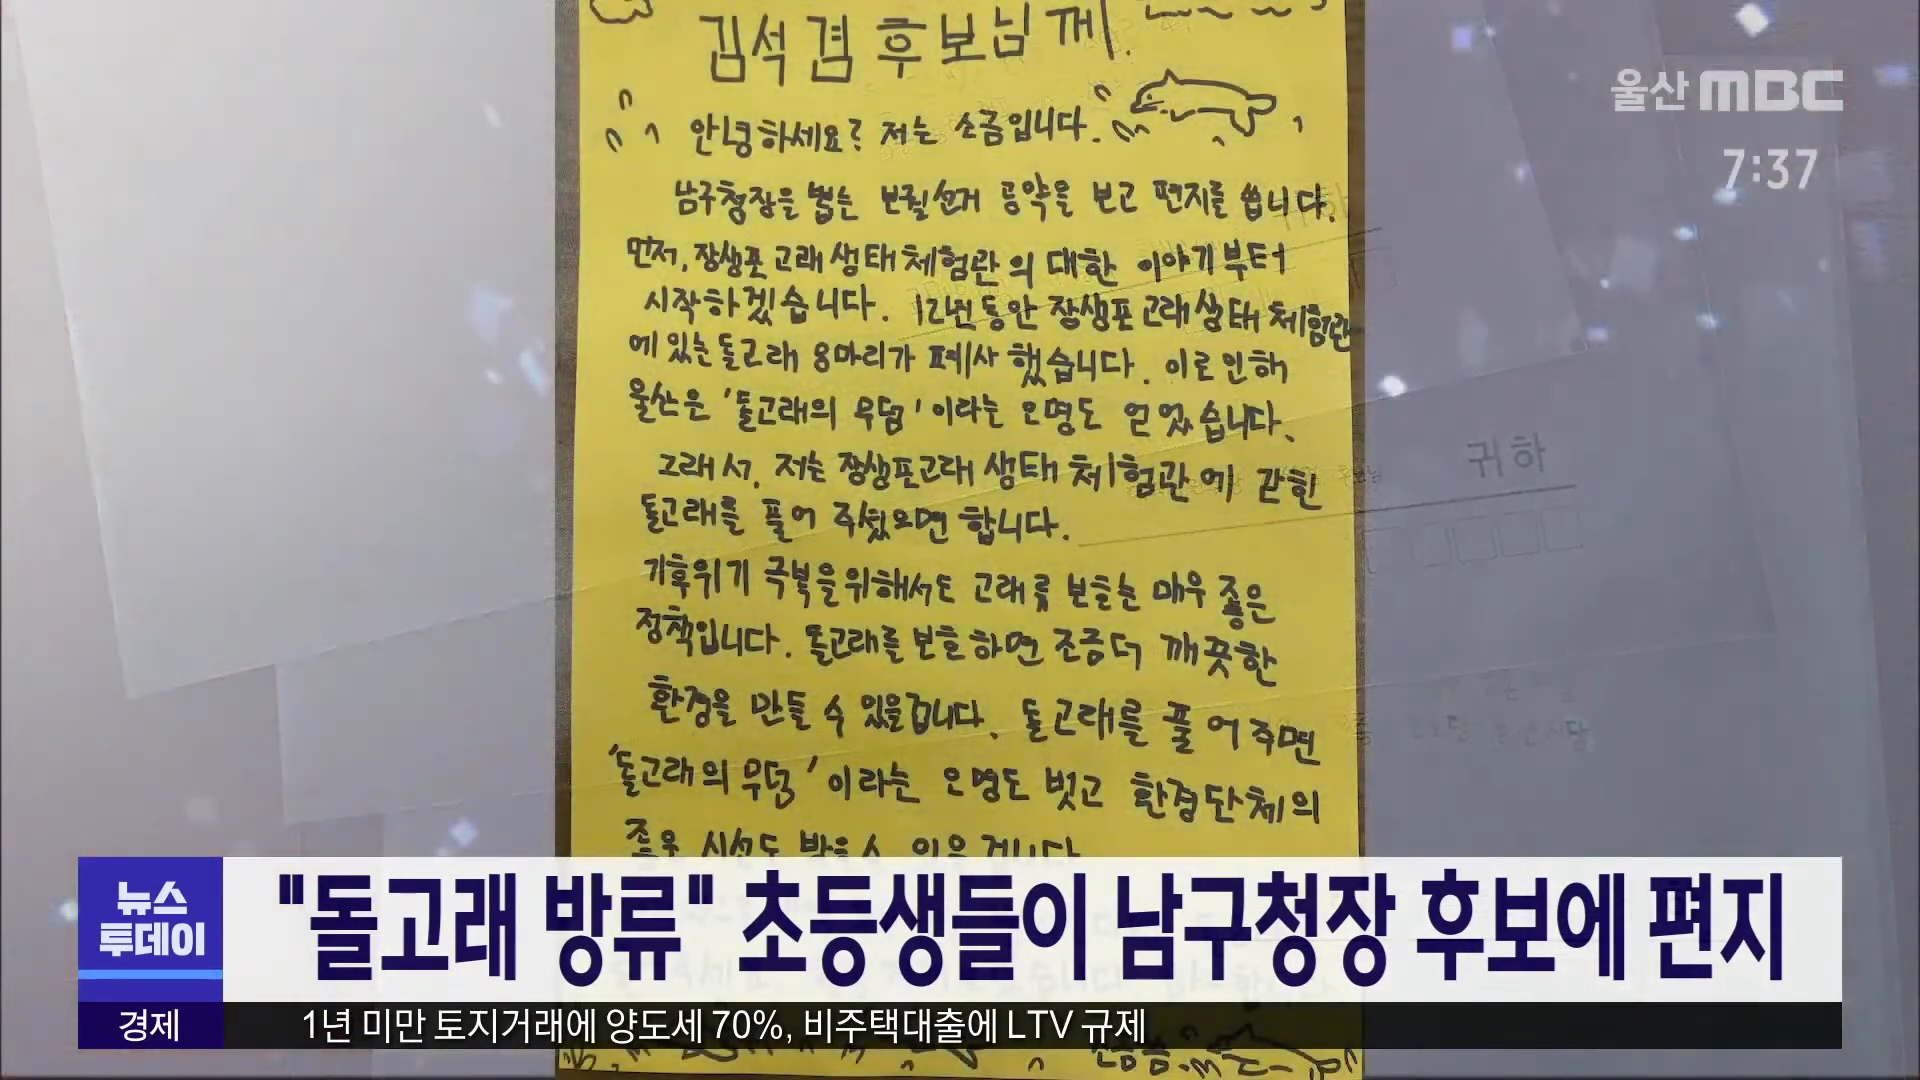 김석겸 후보님께.
울산MBC
7:37
안녕하세요? 저는 소금입니다.
남구청장을 뽑는 보궐선거 공약을 보고 편지를 씁니다.
먼저, 장생포 고래 생태체험관의 대한 이야기부터
시작하겠습니다. 12년동안 장생포고래생태체험관
에 있는 돌고래 8마리가 폐사 했습니다. 이로 인해
울산은 '돌고래의 무덤' 이라는 오명도 얻었습니다.
그래서, 저는 장생포고래 생태체험관에 갇힌
돌고래를 풀어 주셨으면 합니다.
기후위기 극복을위해서도 고래를 보호는 매우 좋은
정책입니다. 돌고래를 보호하면 조금더 깨끗한
환경을 만들 수 있을겁니다. 돌고래를 풀어주면
'돌고래의 무덤' 이라는 오명도 벗고 환경단체의
귀하
"돌고래 방류" 초등생들이 남구청장 후보에 편지
뉴스
투데이
경제
1년 미만 토지거래에 양도세 70%, 비주택대출에 LTV 규제